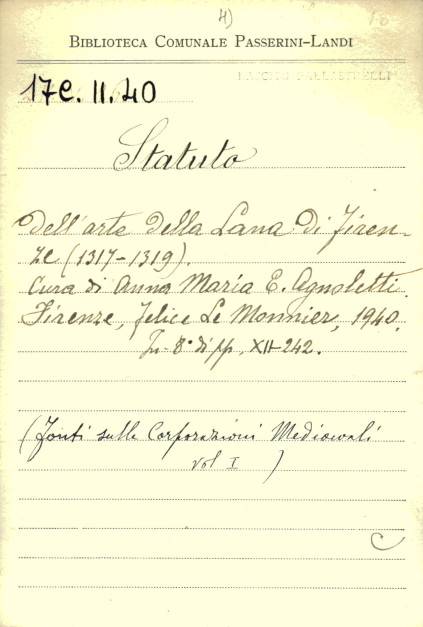 4)
BIBLIOTECA COMUNALE PASSERINI-LANDI
17C. II. 40
Statuto
dell'arte della Lana di Firen-
ze (1317-1319).
Cura di Anna Maria E. Agnoletti.
Firenze, Felice Le Monnier, 1940.
In-8° di pp. XII-242.
(Fonti sulle Corporazioni Medioevali
vol I )
C